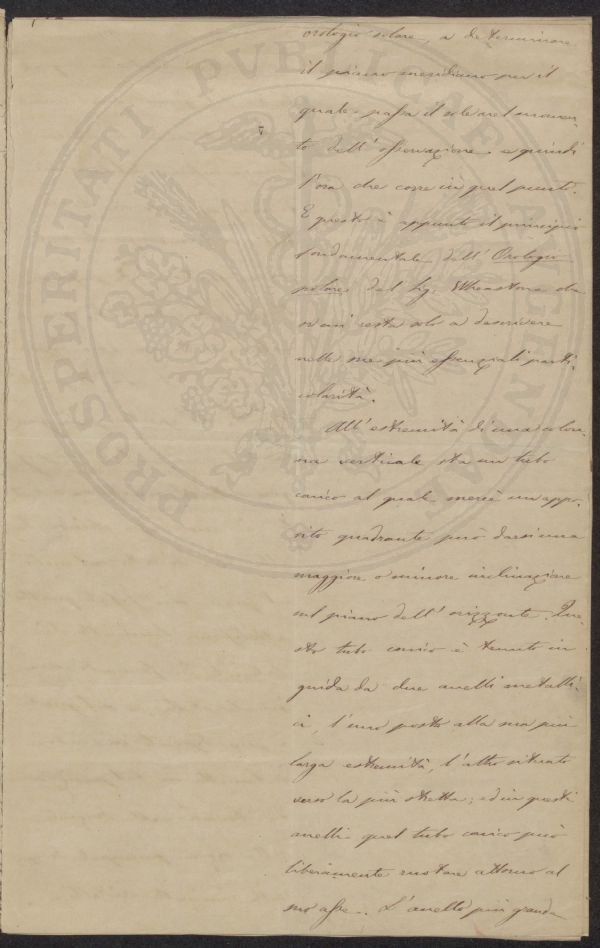 orologio solare, a determinare
il piano meridiano per il
quale passa il sole nel momen-
to dell'osservazione, e quindi
l'ora che corre in quel punto.
E questo è appunto il principio
fondamentale dell'Orologio
polare del Sig. Wheastone che
ora resta solo a descrivere
nelle sue più essenziali parti-
colarità.
All'estremità di una colon-
na verticale sta un tubo
conico al quale mercè un appo-
sito quadrante può darsi una
maggiore o minore inclinazione
sul piano dell'orizzonte. Que-
sto tubo conico è tenuto in
guida da due anelli metalli-
ci, l'uno posto alla sua più
larga estremità, l'altro situato
verso la più stretta; ed in questi
anelli quel tubo conico può
liberamente ruotare attorno al
suo asse. L'anello più grande
PROSPERITATI PUBLICAE AUGENDAE